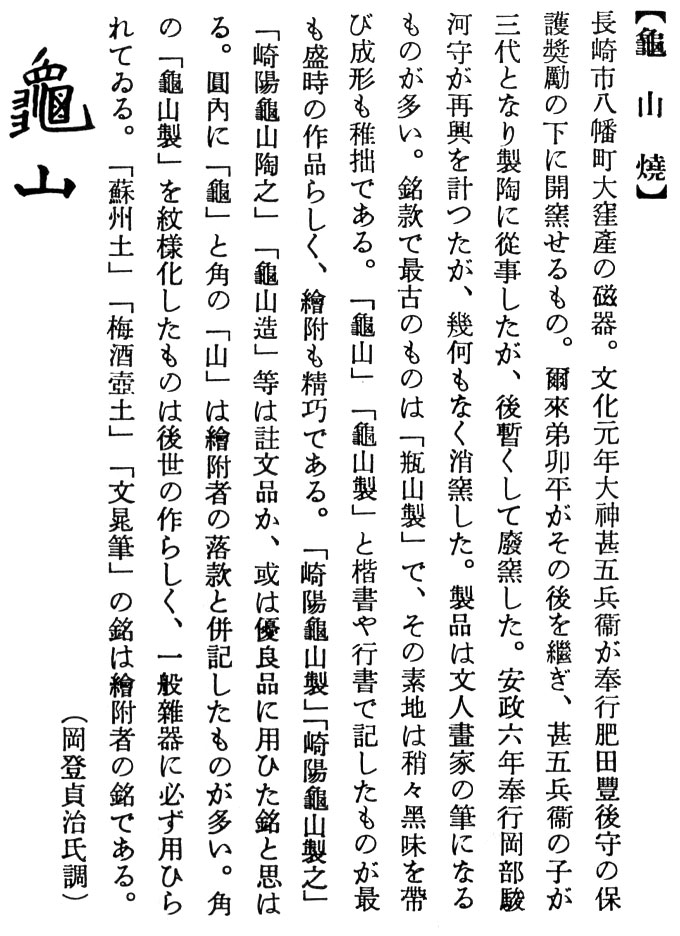 【龜山燒】
長崎市八幡町大窪產の磁器。文化元年大神甚五兵衞が奉行肥田豐後守の保
護奬勵の下に開窯せるもの。爾來弟卯平がその後を繼ぎ、甚五兵衞の子が
三代となり製陶に從事したが、後暫くして廢窯した。安政六年奉行岡部駿
河守が再興を計つたが、幾何もなく消窯した。製品は文人畫家の筆になる
ものが多い。銘款で最古のものは「瓶山製」で、その素地は稍々黑味を帶
び成形も稚拙である。「龜山」「龜山製」と楷書や行書で記したものが最
も盛時の作品らしく、繪附も精巧である。「崎陽龜山製」「崎陽龜山製之」
「崎陽龜山陶之」「龜山造」等は註文品か、或は優良品に用ひた銘と思は
る。圓內に「龜」と角の「山」は繪附者の落款と併記したものが多い。角
の「龜山製」を紋樣化したものは後世の作らしく、一般雜器に必ず用ひら
れてゐる。「蘇州土」「梅酒壺土」「文晁筆」の銘は繪附者の銘である。
（岡登貞治氏調）
龜山